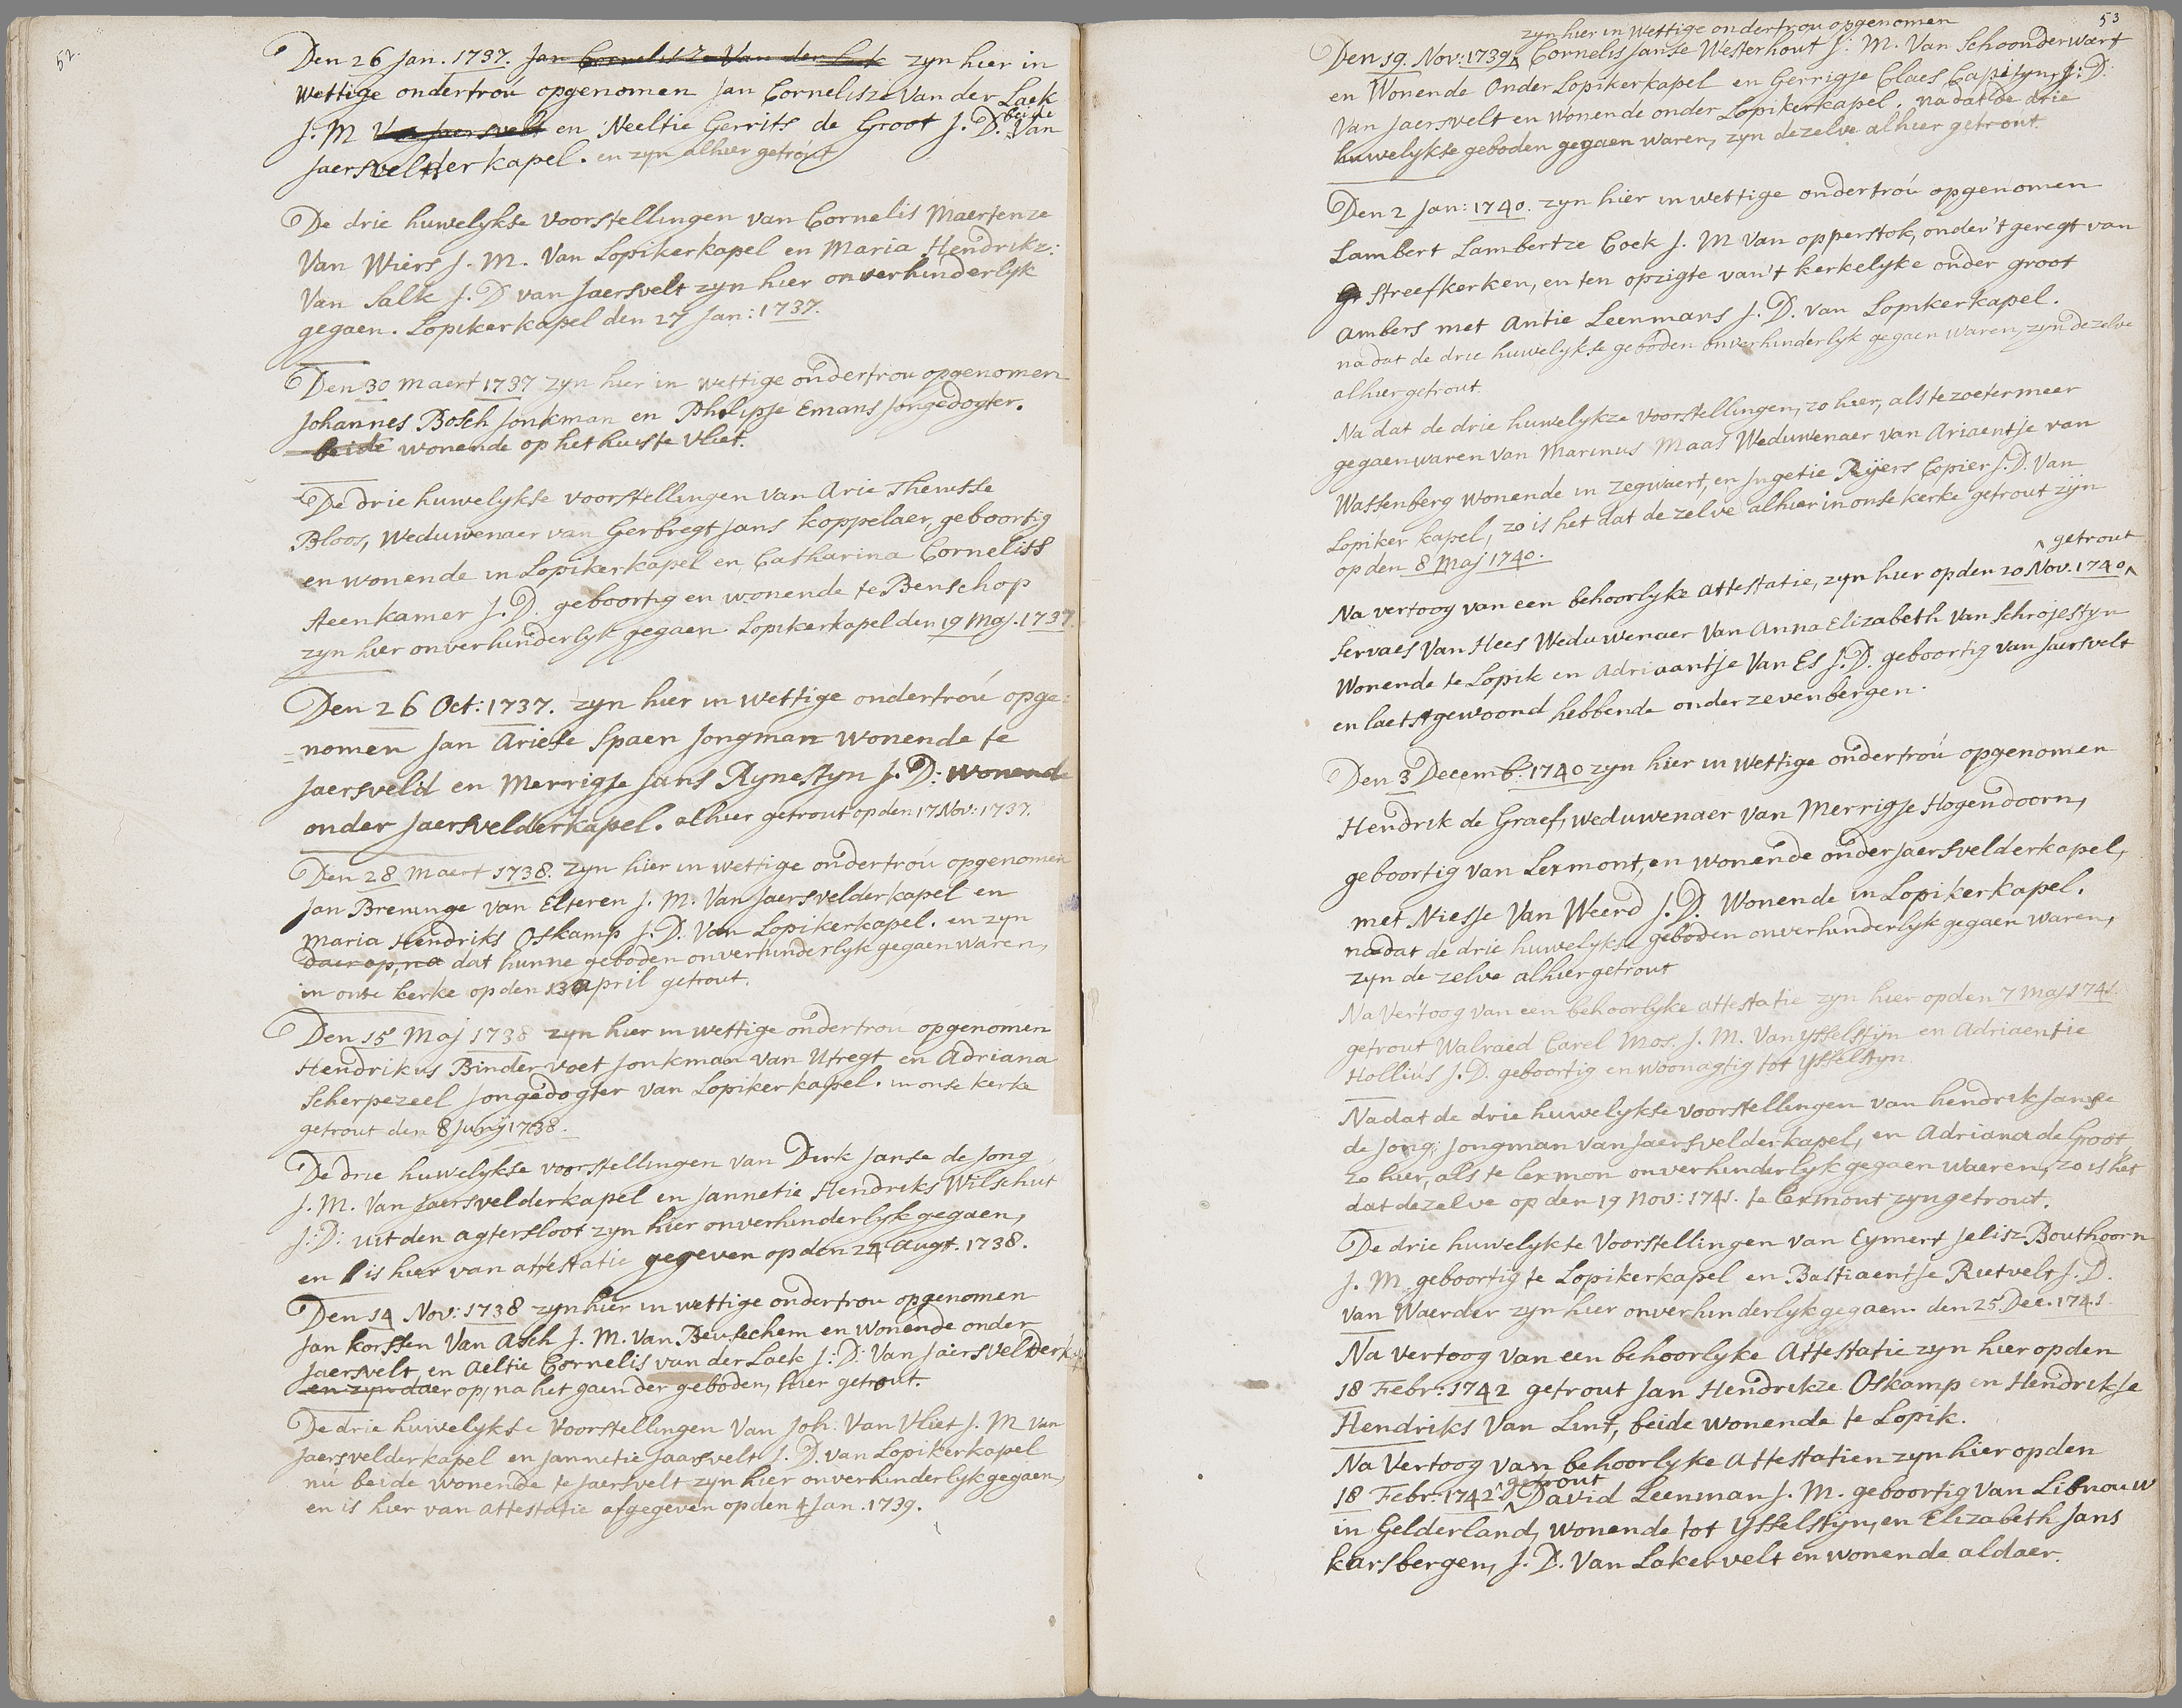 52.
Den 26 Jan. 1737. Jan Cornelisze Van der Laek zyn hier in
wettige ondertrou opgenomen Jan Cornelisze Van der Laek
J. M Van Jaersvelt en Neeltie Gerrits de Groot J. D. beide Van
Jaersvelderkapel. en zyn alhier getrout
De drie huwelykse voorstellingen van Cornelis Maertenze
Van Wiers J. M. Van Lopikerkapel en Maria Hendrikz:
Van Salk J. D van Jaersvelt zyn hier onverhinderlyk
gegaen. Lopikerkapel den 27 Jan: 1737.
Den 30 Maert 1737 zyn hier in wettige ondertrou opgenomen
Johannes Bosch Jonkman en Philipje Emans Jongedogter.
beide wonende op het huis te Vliet.
De drie huwelykse voorstellingen van Arie Theunisse
Bloos, Weduwenaer van Gerbregt Jans Koppelaer, geboortig
en wonende in Lopikerkapel en Catharina Corneliss
Steenkamer J. D. geboortig en wonende te Benschop
zyn hier onverhinderlyk gegaen. Lopikerkapel den 19 Maj. 1737.
Den 26 Oct: 1737. zyn hier in wettige ondertrou opge:
=nomen Jan Ariese Spaen Jongman wonende te
Jaersveld en Merrigje Jans Rynestyn J. D: wonende
onder Jaersvelderkapel. alhier getrout op den 17 Nov: 1737.
Den 28 Maert 1738. zyn hier in wettige ondertrou opgenomen
Jan Breninge van Elteren J. M. Van Jaersvelderkapel en
Maria Hendriks Oskamp J. D. Van Lopikerkapel. en zyn
daer op, na dat hunne geboden onverhinderlyk gegaen waren,
in onse kerke op den 13 April getrout.
Den 15 Maj 1738 zyn hier in wettige ondertrou opgenomen
Hendrikus Bindervoet Jonkman van Utregt en Adriana
Scherpezeel Jongedogter van Lopikerkapel. in onse kerke
getrout den 8 Junij 1738.
De drie huwelykse voorstellingen van Dirk Janse de Jong
J. M. Van Jaersvelderkapel en Jannetie Hendriks Wilschut
J: D: uit den agtersloot zyn hier onverhinderlyk gegaen,
en is hier van attestatie gegeven op den 24 Augt. 1738.
Den 14 Nov: 1738 zyn hier in wettige ondertrou opgenomen
Jan Korssen Van Asch J. M. Van Beusechem en wonende onder
Jaersvelt en Aeltie Cornelis van der Laek J: D: Van Jaersvelderk
en zyn daer op, na het gaen der geboden, hier getrout.
De drie huwelykse Voorstellingen Van Joh: Van Vliet J. M van
Jaersvelderkapel en Jannetie Jaarsvelt J. D. van Lopikerkapel
nu beide wonende te Jaersvelt zyn hier onverhinderlyk gegaen,
en is hier van attestatie afgegeven op den 4 Jan. 1739.
53
zyn hier in wettige ondertrou opgenomen
Den 19. Nov: 1739 Cornelis Janse Westerhout J: M. Van Schoonderwoert
en Wonende Onder Lopikerkapel en Gerrigje Claes Capiteyn J: D:
Van Jaersvelt en wonende onder Lopikerkapel. na dat de drie
huwelykse geboden gegaen waren, zyn dezelve alhier getrout.
Den 2 Jan: 1740. zyn hier in wettige ondertrou opgenomen
Lambert Lambertze Coek J. M van opperstok, onder 't geregt van
Streefkerken, en ten opzigte van 't kerkelyke onder groot
Ambers met Antie Leenmans J. D. van Lopikerkapel.
na dat de drie huwelykse geboden onverhinderlyk gegaen waren, zyn dezelve
alhier getrout.
Na dat de drie huwelykze voorstellingen, zo hier, als te zoetermeer
gegaen waren van Marinus Maas Weduwenaer van Ariaentje van
Wassenberg wonende in zegwaert, en Ingetie Ryers Copier J. D. Van
Lopiker kapel, zo is het dat de zelve alhier in onse kerke getrout zyn
op den 8 Maj 1740.
getrout
Na vertoog van een behoorlyke attestatie, zyn hier op den 20 Nov. 1740
Servaes Van Hees Weduwenaer Van Anna Elizabeth Van Schrojestyn
Wonende te Lopik en Adriaantje Van Es J. D. geboortig van Jaersvelt
en laetst gewoond hebbende onder zevenbergen.
Den 3 Decemb: 1740 zyn hier in wettige ondertrou opgenomen
Hendrik de Graef, weduwenaer van Merrigje Hogendoorn,
geboortig van Lexmont, en wonende onder Jaersvelderkapel,
met Niesje Van Weerd J. D. Wonende in Lopikerkapel.
nadat de drie huwelykse geboden onverhinderlyk gegaen waren,
zyn de zelve alhier getrout
Na Vertoog van een behoorlyke attestatie zyn hier op den 7 Maj 1741.
getrout Walraed Carel Mos, J. M. Van Ysselstyn en Adriaentie
Hollius J. D. geboortig en woonagtig tot Ysselstyn
Nadat de drie huwelykse voorstellingen van hendrik Janse
de Jong; Jongman van Jaersvelderkapel, en Adriana de Groot
zo hier, als te lexmon onverhinderlyk gegaen waeren, zo is het
dat dezelve op den 19 Nov: 1741. te lexmont zyn getrout.
De drie huwelykse Voorstellingen van Eymert Jelisz Bouthoorn
J. M. geboortig te Lopikerkapel en Bastiaentje Rietvelt J. D.
van Waerder zyn hier onverhinderlyk gegaen den 25 Dec. 1741
Na vertoog van een behoorlyke Attestatie zyn hier op den
18 Febr: 1742 getrout Jan Hendrikze Oskamp en Hendrikje
Hendriks Van Lint, beide wonende te Lopik.
Na Vertoog van behoorlyke Attestatien zyn hier op den
18 Febr: 1742 getrout David Leenman J. M. geboortig Van Libnouw
in Gelderland, wonende tot Ysselstyn, en Elizabeth Jans
karsbergen, J. D. Van Lakervelt en wonende aldaer.